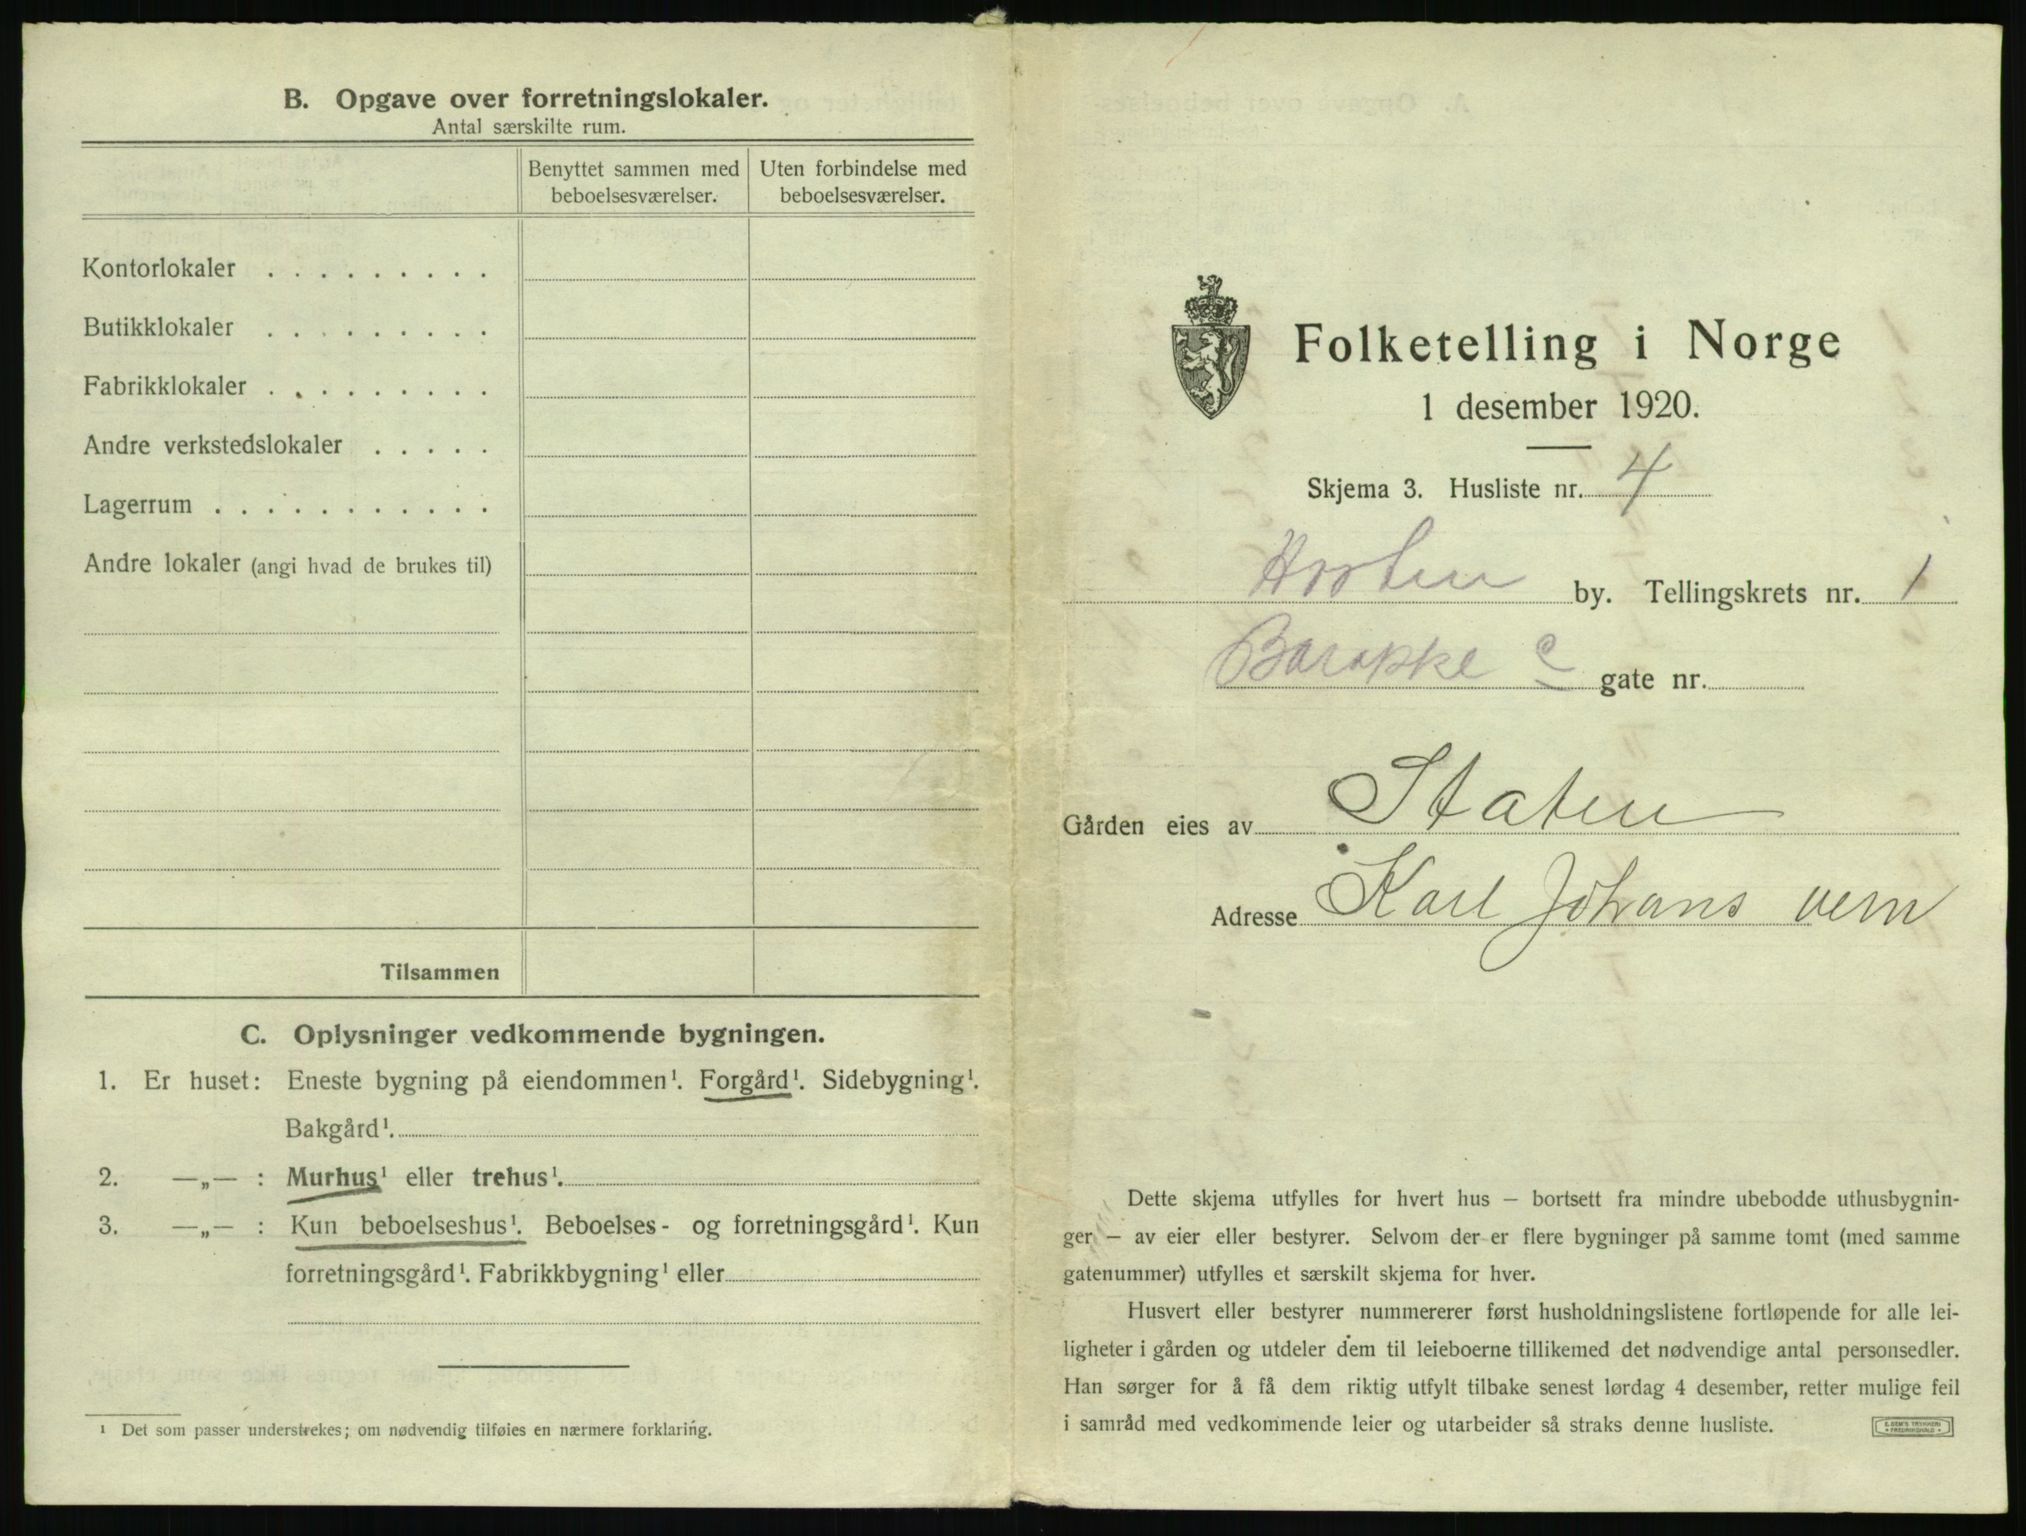 B. Opgave over forretningslokaler.
Antal særskilte rum.
Benyttet sammen med beboelsesværelser.
Uten forbindelse med beboelsesværelser.
Kontorlokaler . . . . . . . . .
Butikklokaler . . . . . . . . .
Fabrikklokaler . . . . . . . . .
Andre verkstedslokaler . . . . .
Lagerrum . . . . . . . . . . .
Andre lokaler (angi hvad de brukes til)
Tilsammen
C. Oplysninger vedkommende bygningen.
1. Er huset: Eneste bygning på eiendommen¹. Forgård¹. Sidebygning¹.
Bakgård¹.
2. —„— : Murhus¹ eller trehus¹.
3. —„— : Kun beboelseshus¹. Beboelses- og forretningsgård¹. Kun
forretningsgård¹. Fabrikkbygning¹ eller
¹ Det som passer understrekes; om nødvendig tilføies en nærmere forklaring.
Folketelling i Norge
1 desember 1920.
Skjema 3. Husliste nr. 4
Horten by. Tellingskrets nr. 1
Barakke C gate nr.
Gården eies av Staten
Adresse Karl Johans vern
Dette skjema utfylles for hvert hus — bortsett fra mindre ubebodde uthusbygnin-
ger — av eier eller bestyrer. Selvom der er flere bygninger på samme tomt (med samme
gatenummer) utfylles et særskilt skjema for hver.
Husvert eller bestyrer nummererer først husholdningslistene fortløpende for alle lei-
ligheter i gården og utdeler dem til leieboerne tillikemed det nødvendige antal personsedler.
Han sørger for å få dem riktig utfylt tilbake senest lørdag 4 desember, retter mulige feil
i samråd med vedkommende leier og utarbeider så straks denne husliste.
E. SEM'S TRYKKERI
FREDRIKSHALD